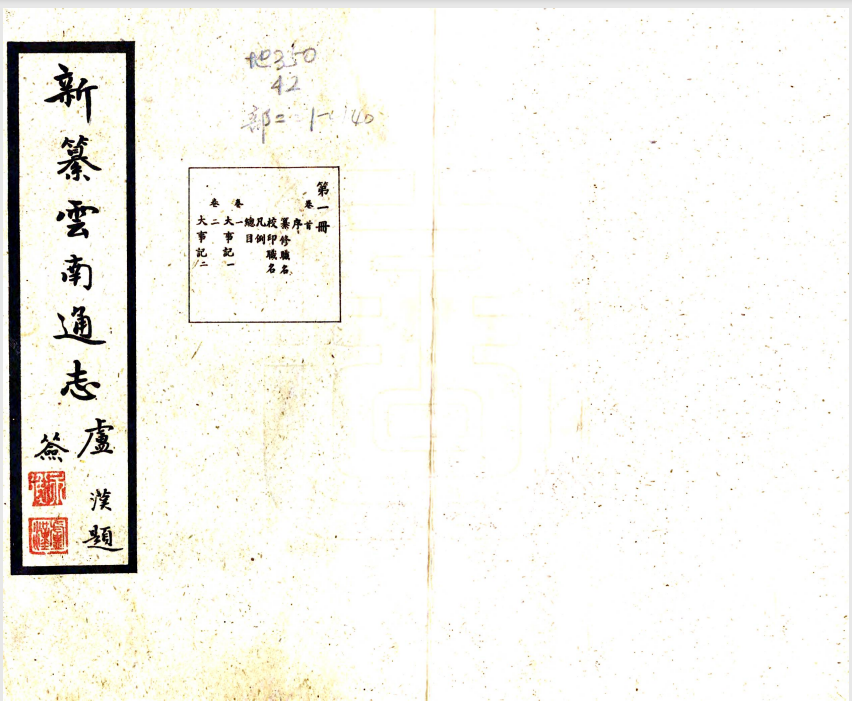 新纂雲南通志
盧漢題
簽
盧漢
地350
42
部二 1-140
第一冊
卷首
序
纂修職名
校印職名
凡例
總目
卷一
大事記一
卷二
大事記二